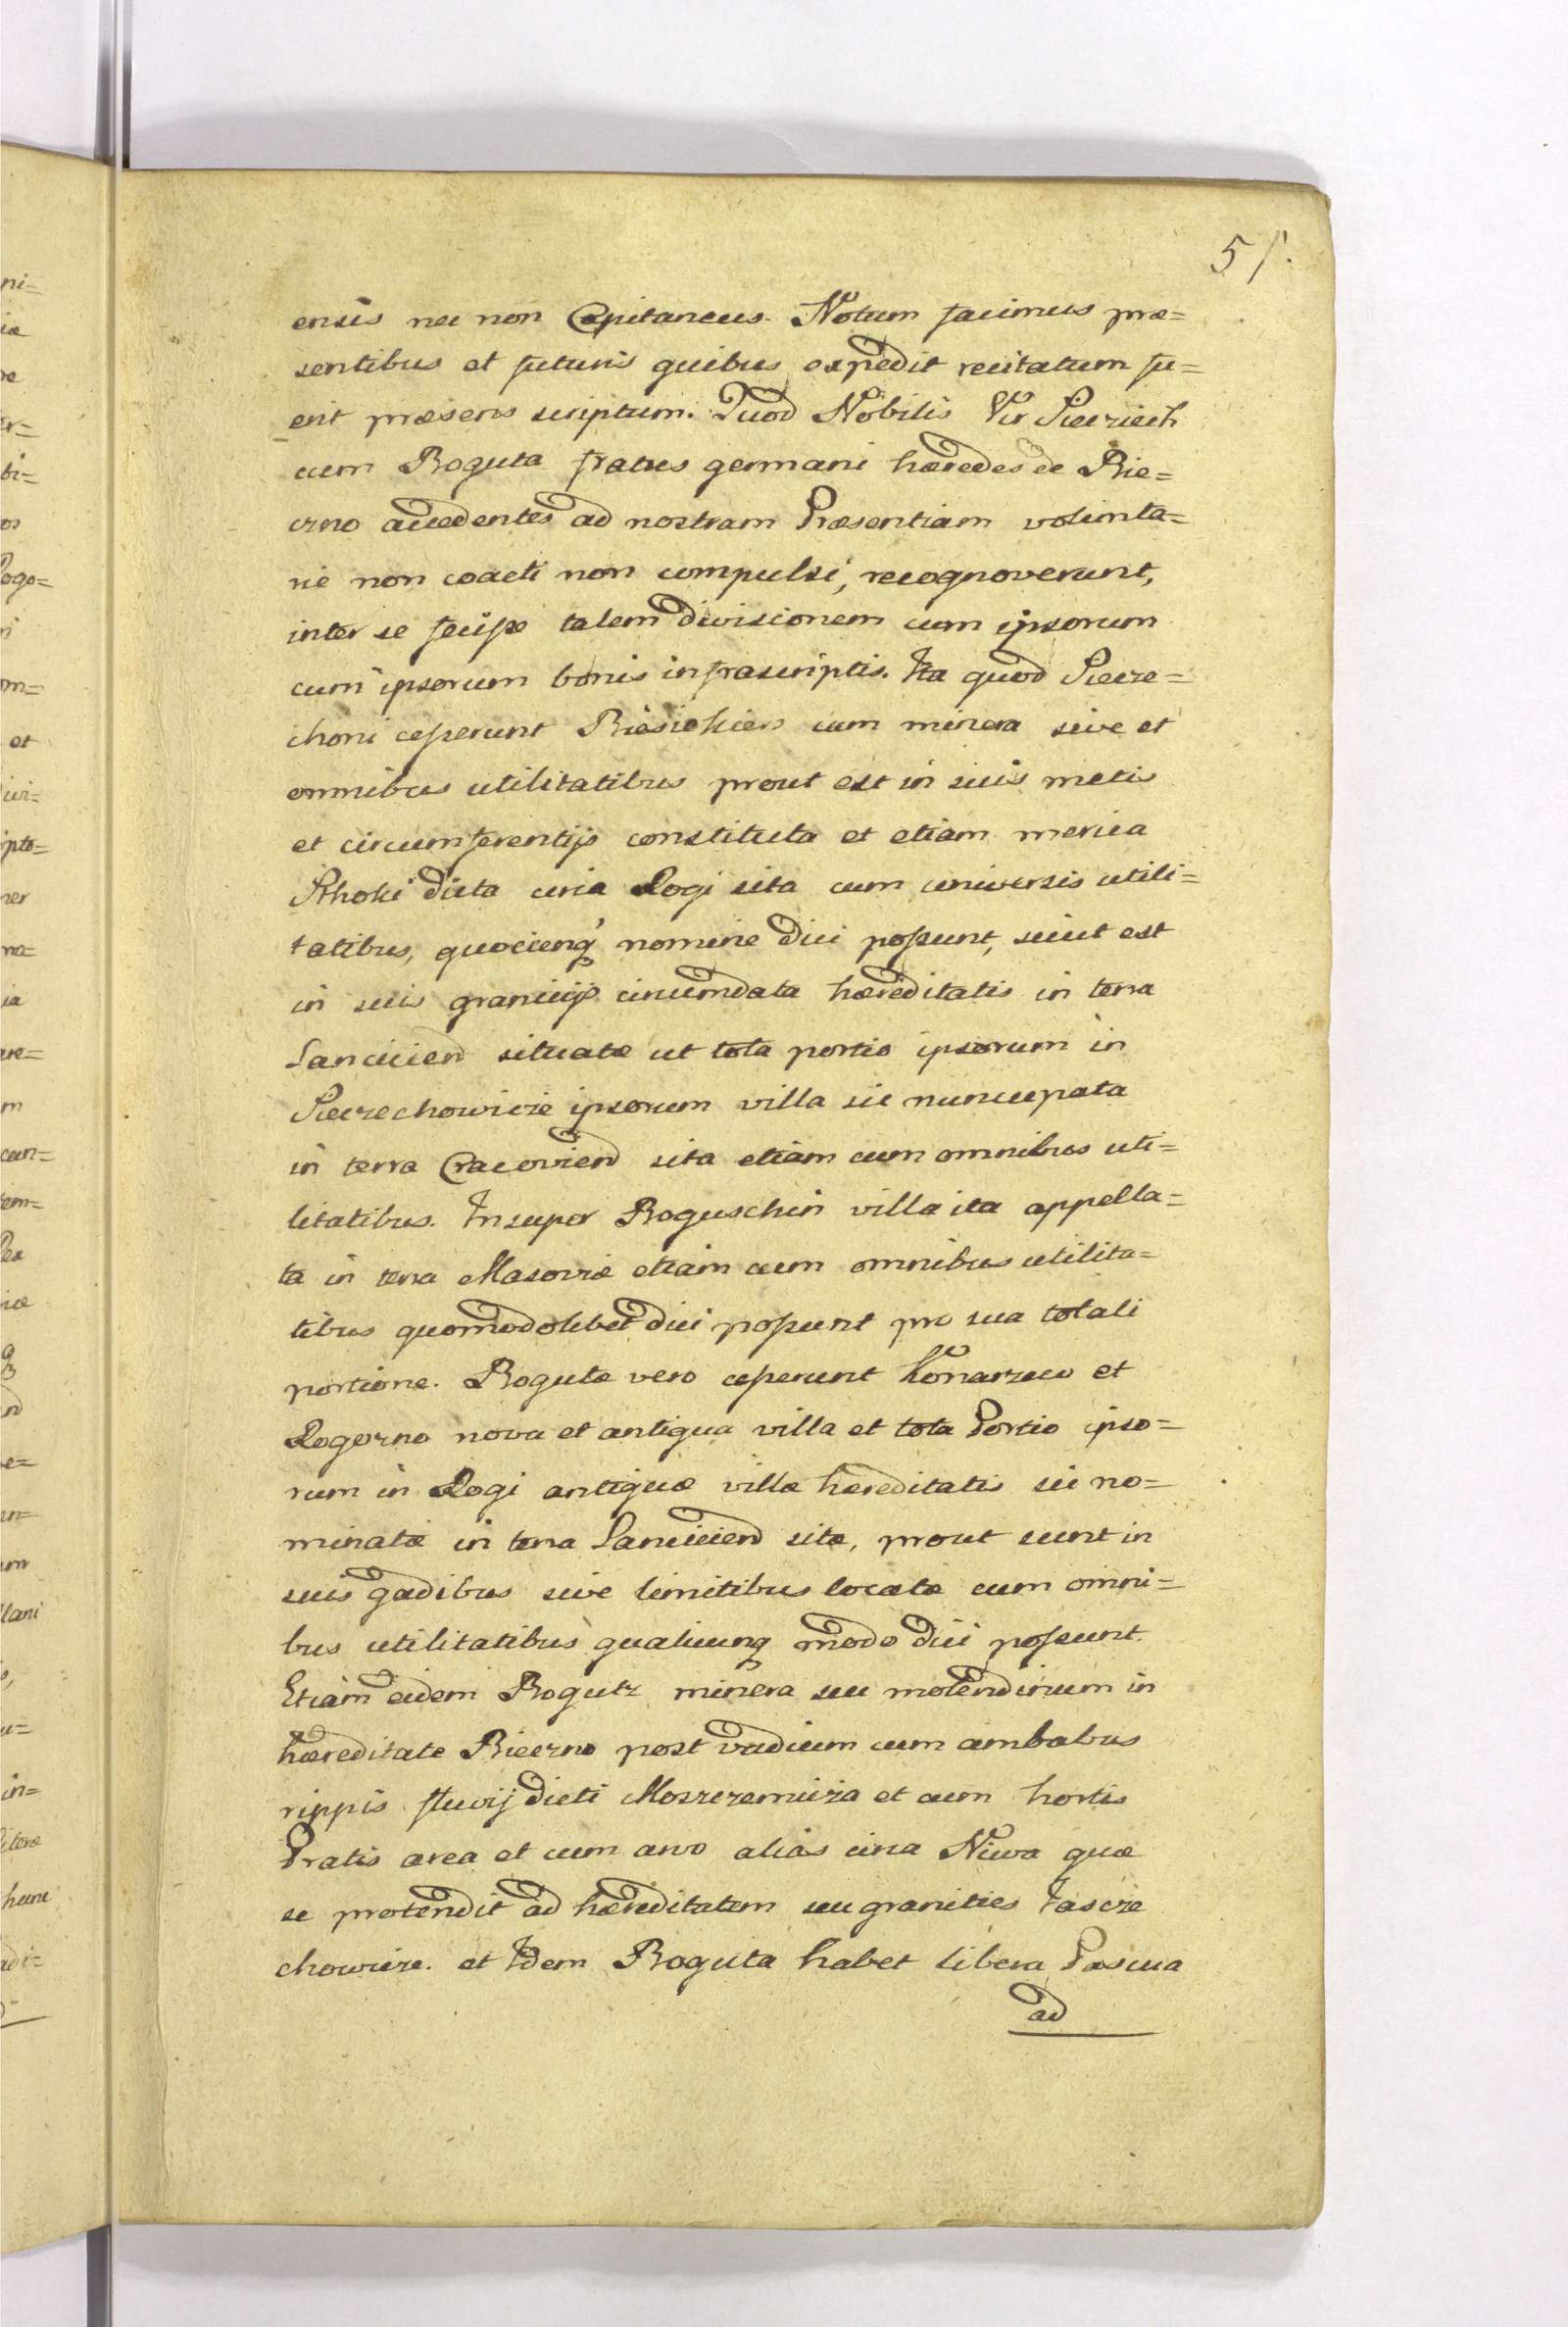 51.
ensis nec non Capitaneus. Notum facimus præ=
sentibus et futuris quibus expedit recitatum fu=
erit præsens scriptum. Quod Nobilis Vir Piecziech
cum Boguta fratres germani hæredes de Bie=
czno accedentes ad nostram Præsentiam volunta=
rie non coacti non compulsi, recognoverunt,
inter se fecisse talem divisionem cum ipsorum
cum ipsorum bonis infrascriptis. Ita quod Piecze=
choni ceperunt Biesiekiers cum minera sive et
omnibus utilitatibus prout est in suis metis
et circumferentijs constituta et etiam merica
Skoki dicta circa Rogi sita cum universis utili=
tatibus, quocienq nomine dici possunt, sicut est
in suis granicijs circumdata hæreditatis in terra
Lancicien situatæ ut tota portio ipsorum in
Pieczechowicze ipsorum villa sic nuncupata
in terra Cracovien sita etiam cum omnibus uti=
litatibus. Insuper Boguschin villa ita appella=
ta in terra Masoviæ etiam cum omnibus utilita=
tibus quomodolibet dici possunt pro sua totali
portione. Bogutæ vero ceperunt Konarzewo et
Rogozno nova et antiqua villa et tota Portio ipso=
rum in Rogi antiquæ villæ hæreditatis sic no=
minatæ in terra Lancicien sitæ, prout sunt in
suis gadibus sive limitibus locatæ cum omni=
bus utilitatibus qualicunq modo dici possunt.
Etiam eidem Bogutz minera seu molendinum in
hæreditate Bieczno post vadium cum ambabus
rippis fluvij dicti Moszczenicza et cum hortis
Pratis area et cum arvo alias circa Niwa quæ
se protendit ad hæreditatem seu granities Jascze
chowicze. et Idem Boguta habet libera Pascua
ad